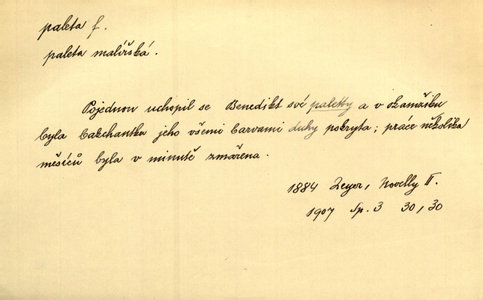 paleta f.
paleta malířská.
Pojednou uchopil se Benedikt své paletty a v okamžiku
byla Bakchantka jeho všemi barvami duhy pokryta; práce několika
měsíců byla v minutě zmařena.
1884 Zeyer, Novelly II.
1907 Sp. 3 30, 30